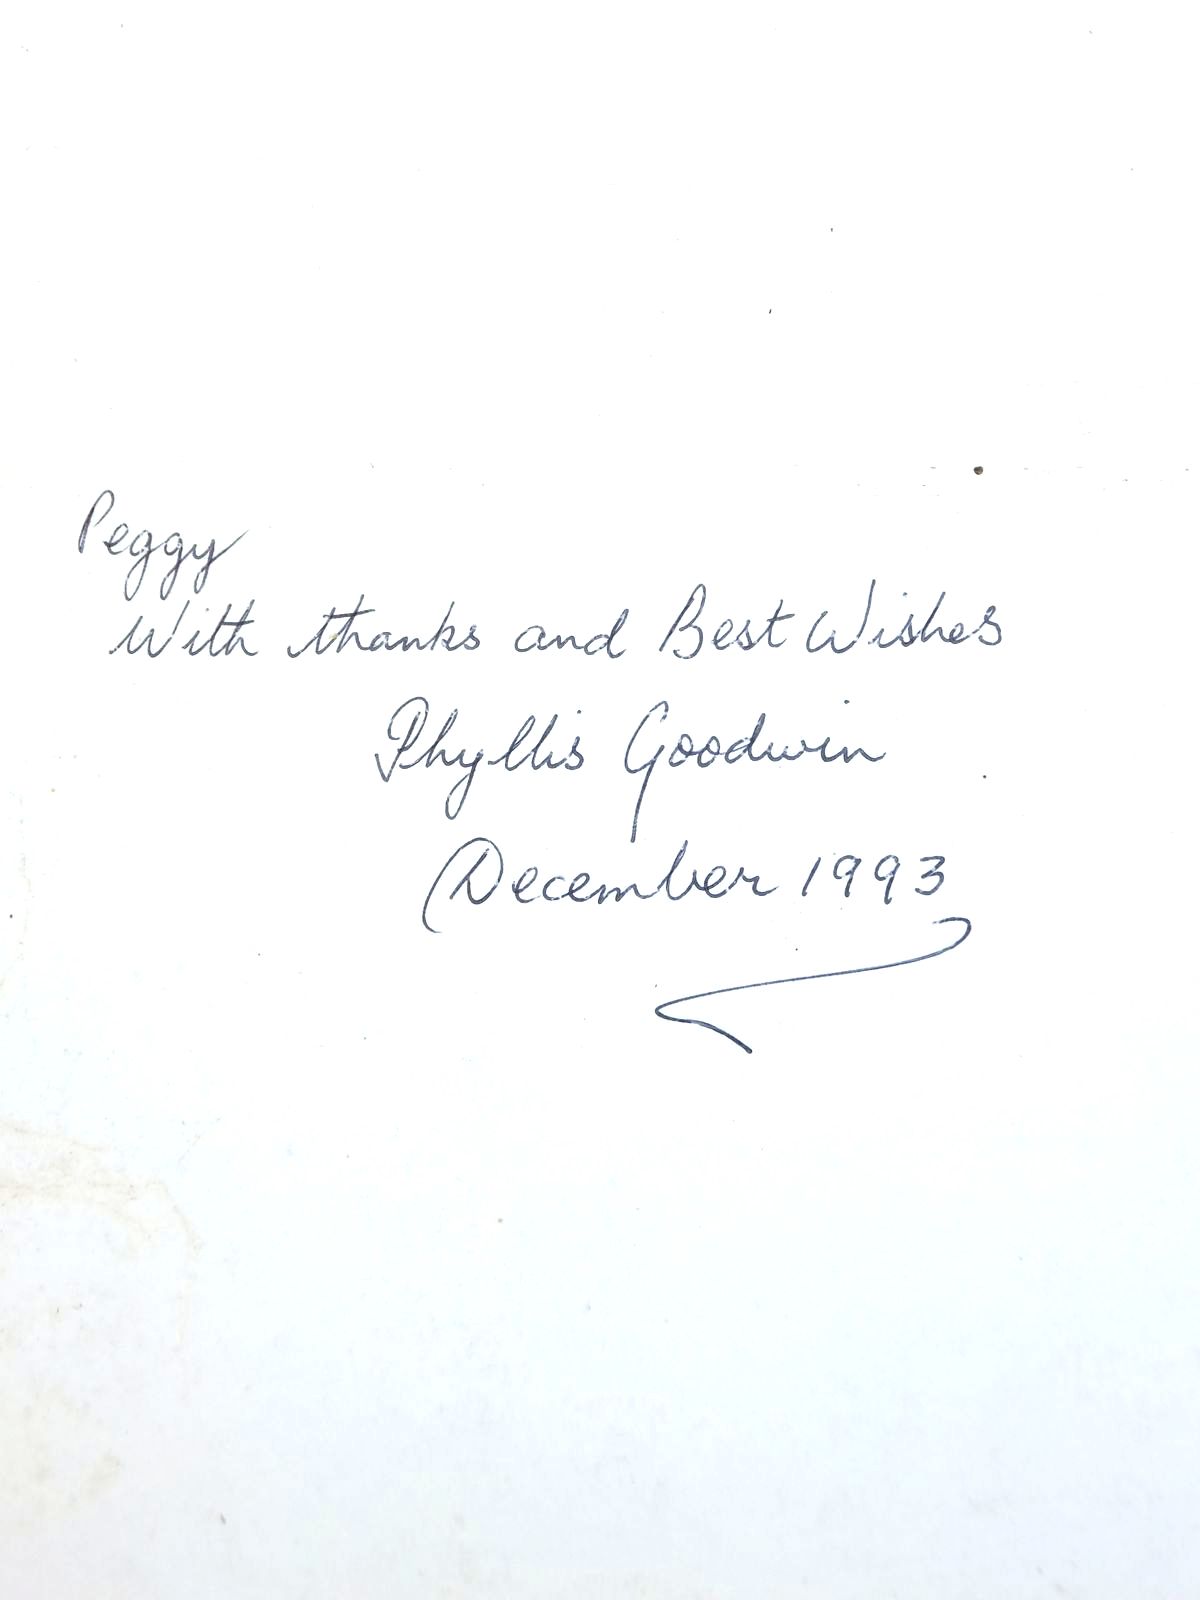 Peggy
With thanks and Best Wishes
Phyllis Goodwin
December 1993